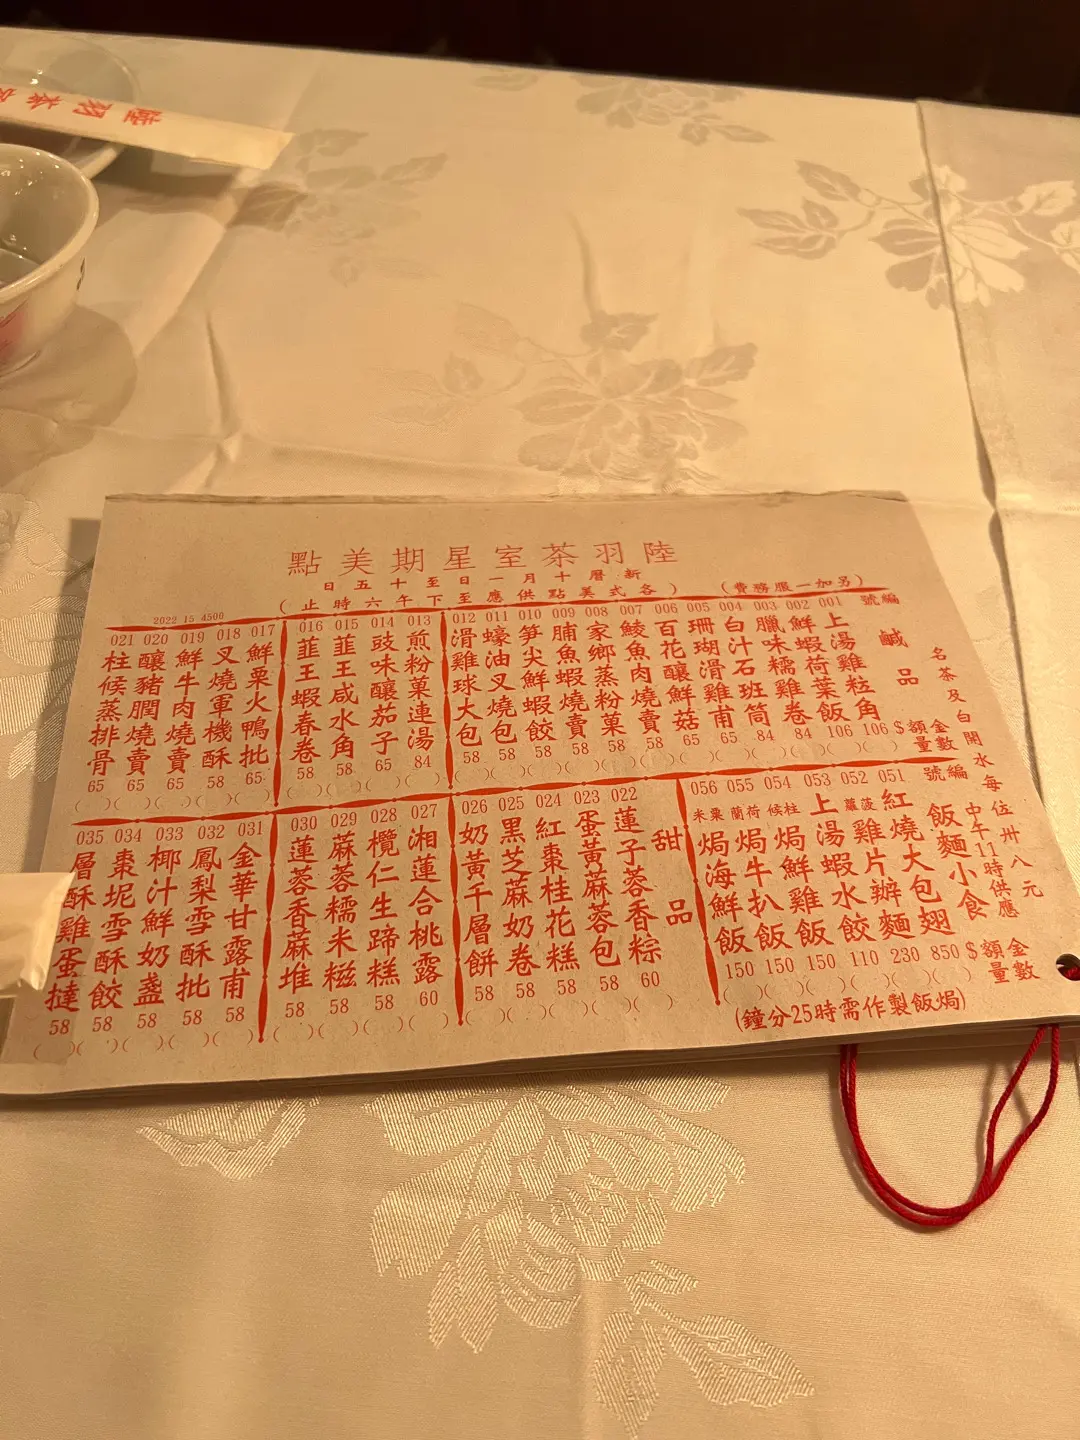 陸羽茶室星期美點
新曆十月一日至十五日
(另加一服務費)
(各式美點供應至下午六時止)
2022 15 4500
名茶及白開水每位卅八元
中午11時供應
鹹品
編號
金額 $
數量
001 上湯雞粒角 106 ( )
002 鮮蝦荷葉飯 106 ( )
003 臘味糯雞卷 84 ( )
004 白汁石班筒 84 ( )
005 珊瑚滑雞甫 65 ( )
006 百花釀鮮菇 65 ( )
007 鯪魚肉燒賣 58 ( )
008 家鄉蒸粉菓 58 ( )
009 脯魚蝦燒賣 58 ( )
010 笋尖鮮蝦餃 58 ( )
011 蠔油叉燒包 58 ( )
012 滑雞球大包 58 ( )
013 煎粉菓連湯 84 ( )
014 豉味釀茄子 65 ( )
015 韮王咸水角 58 ( )
016 韮王蝦春卷 58 ( )
017 鮮栗火鴨批 65 ( )
018 叉燒軍機酥 58 ( )
019 鮮牛肉燒賣 65 ( )
020 釀豬膶燒賣 65 ( )
021 柱候蒸排骨 65 ( )
飯麵小食
編號
金額 $
數量
051 紅燒大包翅 850 ( )
052 菠蘿雞片辦麵 230 ( )
053 上湯蝦水餃 110 ( )
054 柱候焗鮮雞飯 150 ( )
055 荷蘭焗牛扒飯 150 ( )
056 粟米焗海鮮飯 150 ( )
(焗飯製作需時25分鐘)
甜品
022 蓮子蓉香粽 60 ( )
023 蛋黃蔴蓉包 58 ( )
024 紅棗桂花糕 58 ( )
025 黑芝蔴奶卷 58 ( )
026 奶黃千層餅 58 ( )
027 湘蓮合桃露 60 ( )
028 欖仁生蹄糕 58 ( )
029 蔴蓉糯米糍 58 ( )
030 蓮蓉香蔴堆 58 ( )
031 金華甘露甫 58 ( )
032 鳳梨雪酥批 58 ( )
033 椰汁鮮奶盞 58 ( )
034 棗坭雪酥餃 58 ( )
035 層酥雞蛋撻 58 ( )
陸羽茶室